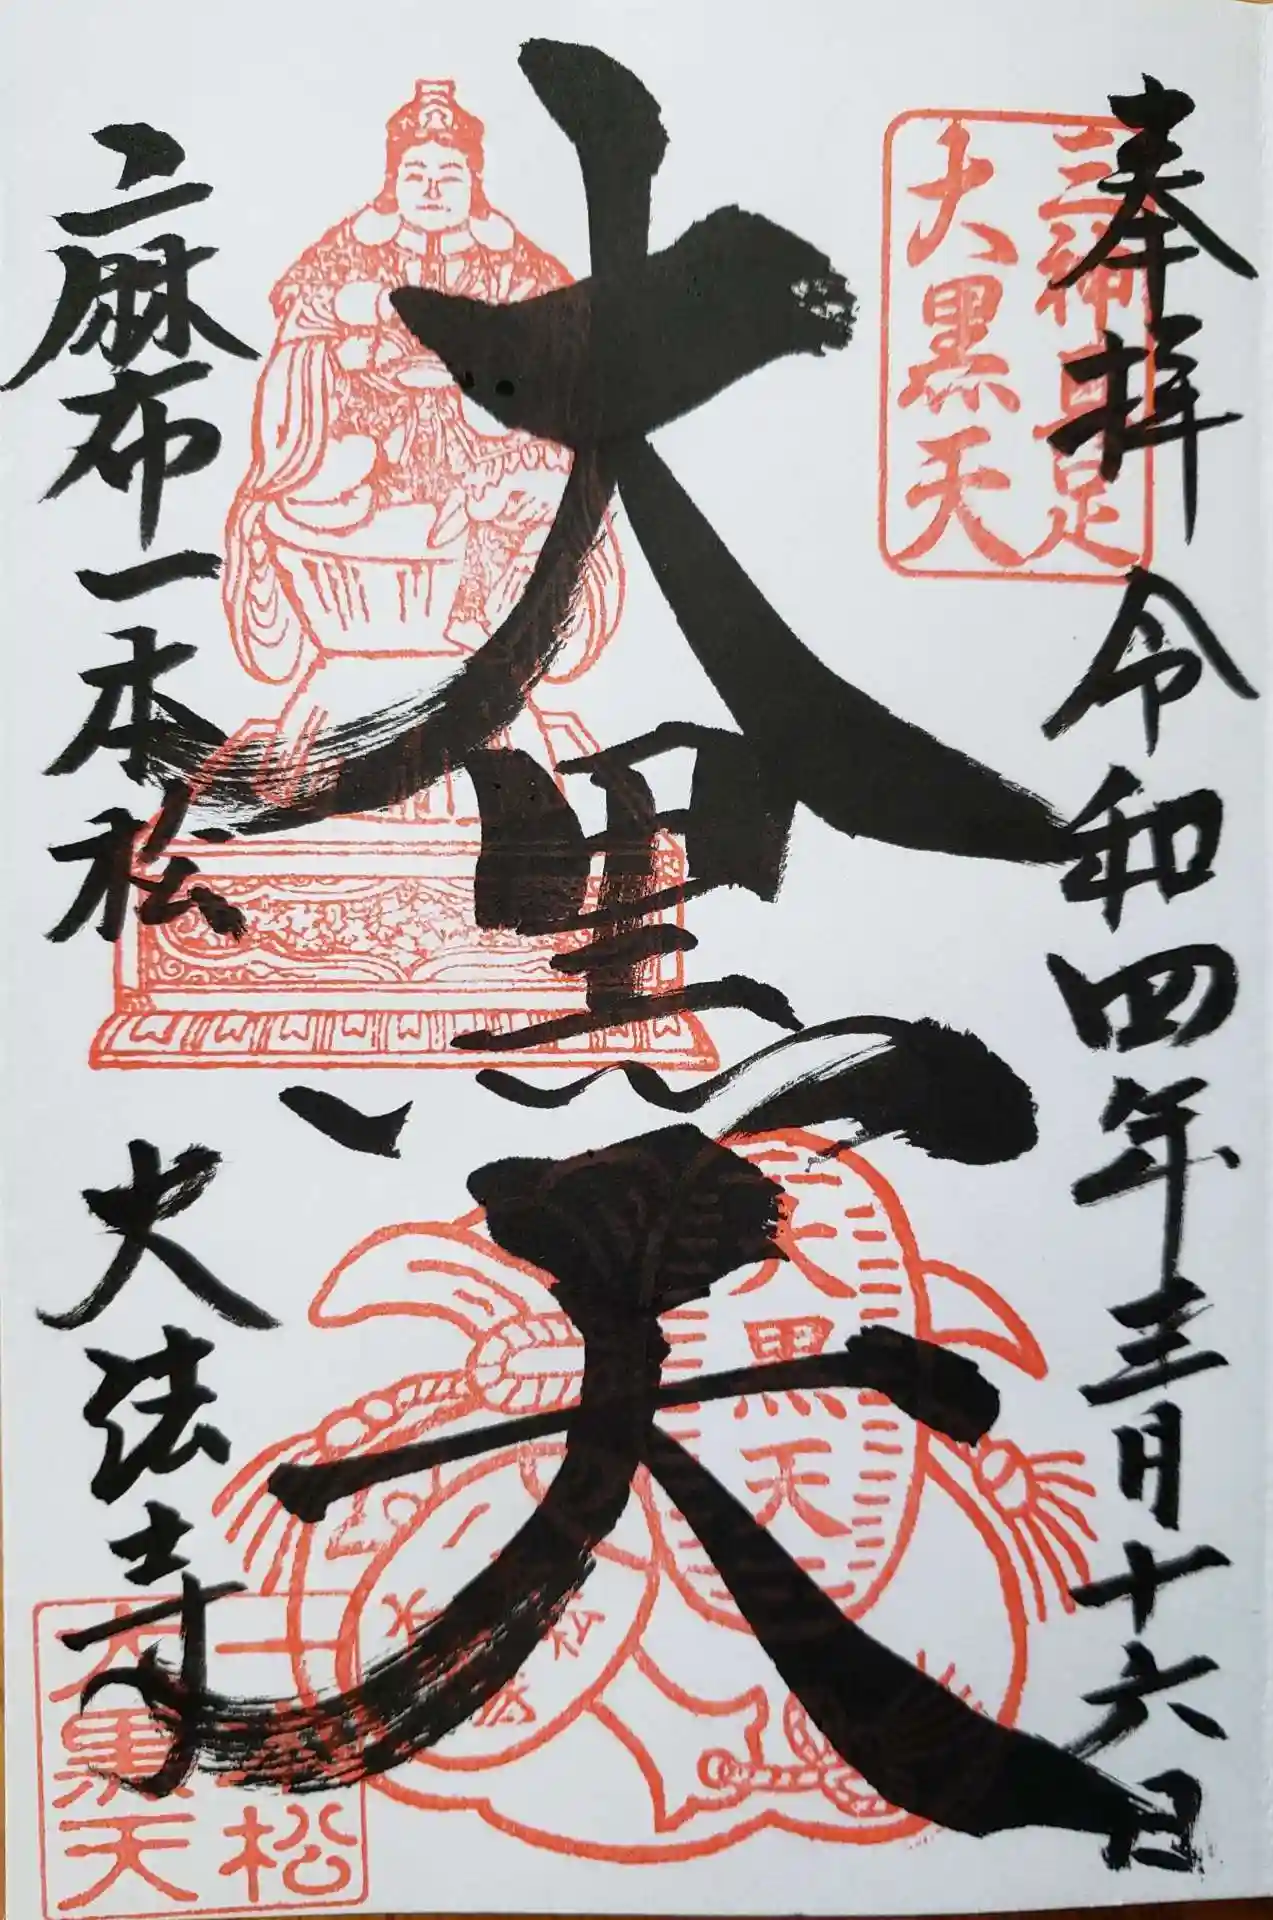 奉拝 令和四年三月十六日
三神具足
大黒天
大黒天
大黒天
元麻布一本松 大法寺
一本松
大黒天